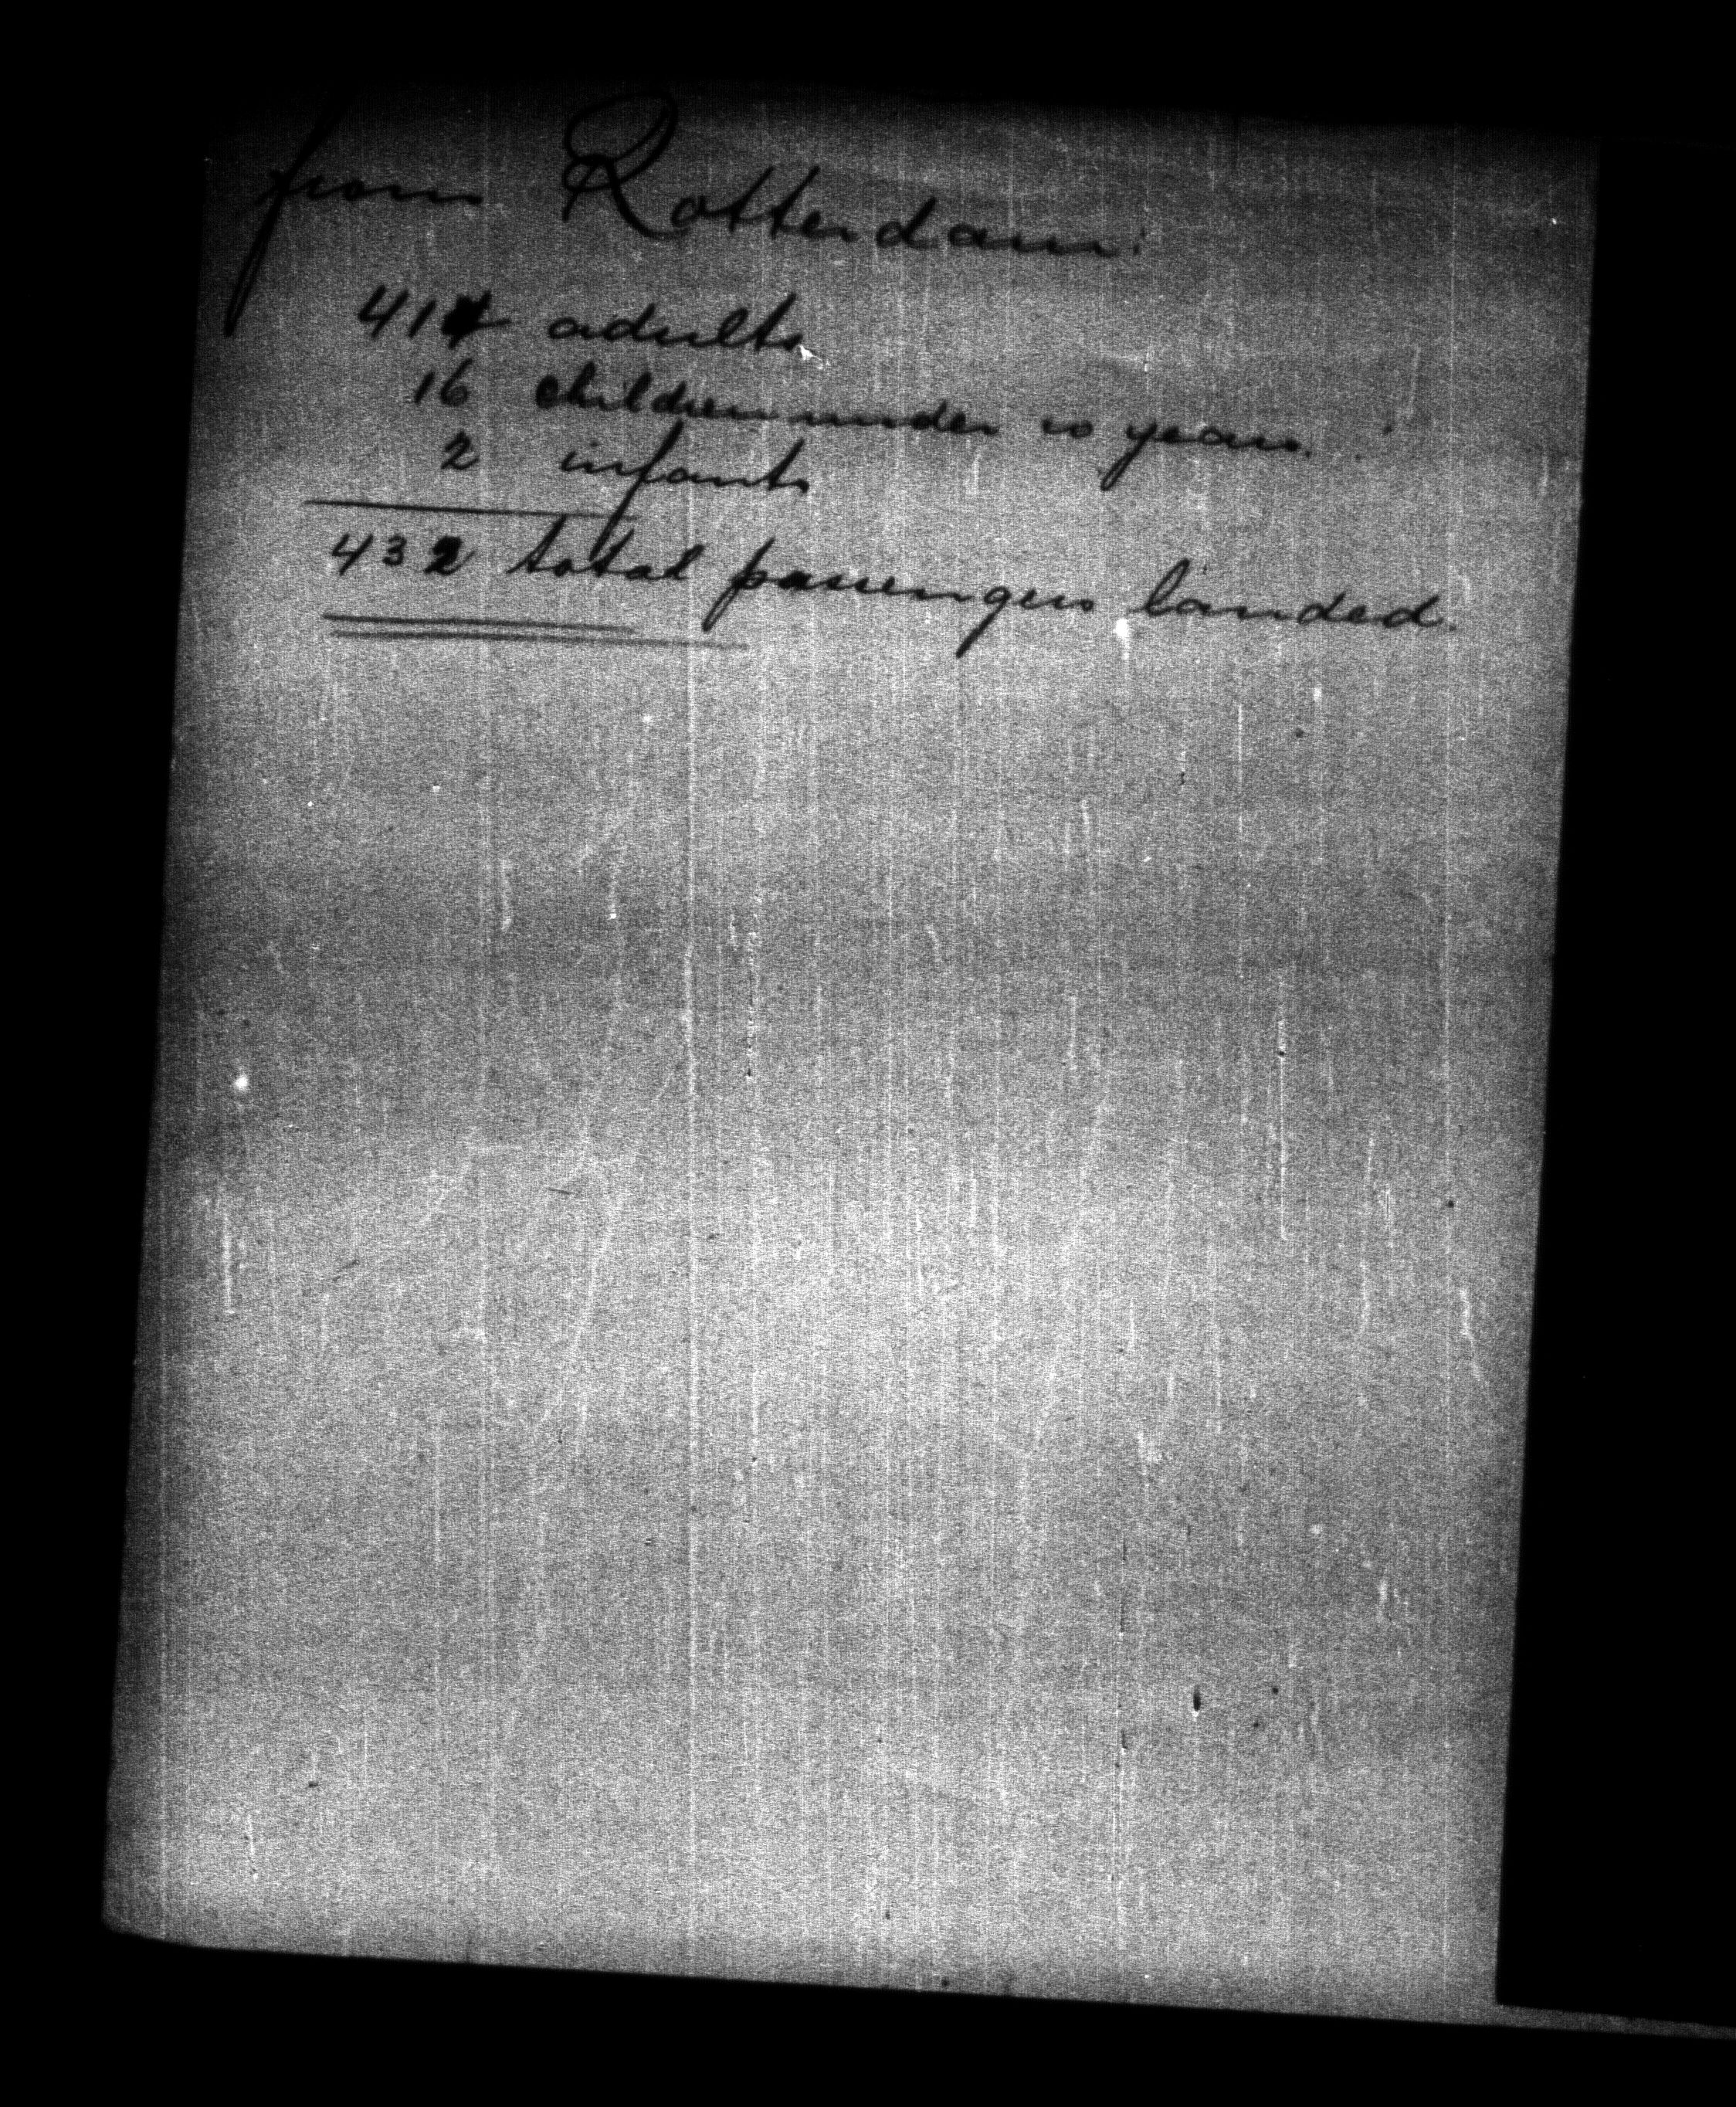 from Rotterdam:
414 adults
16 children under 10 years.
2 infants
432 total passengers landed.